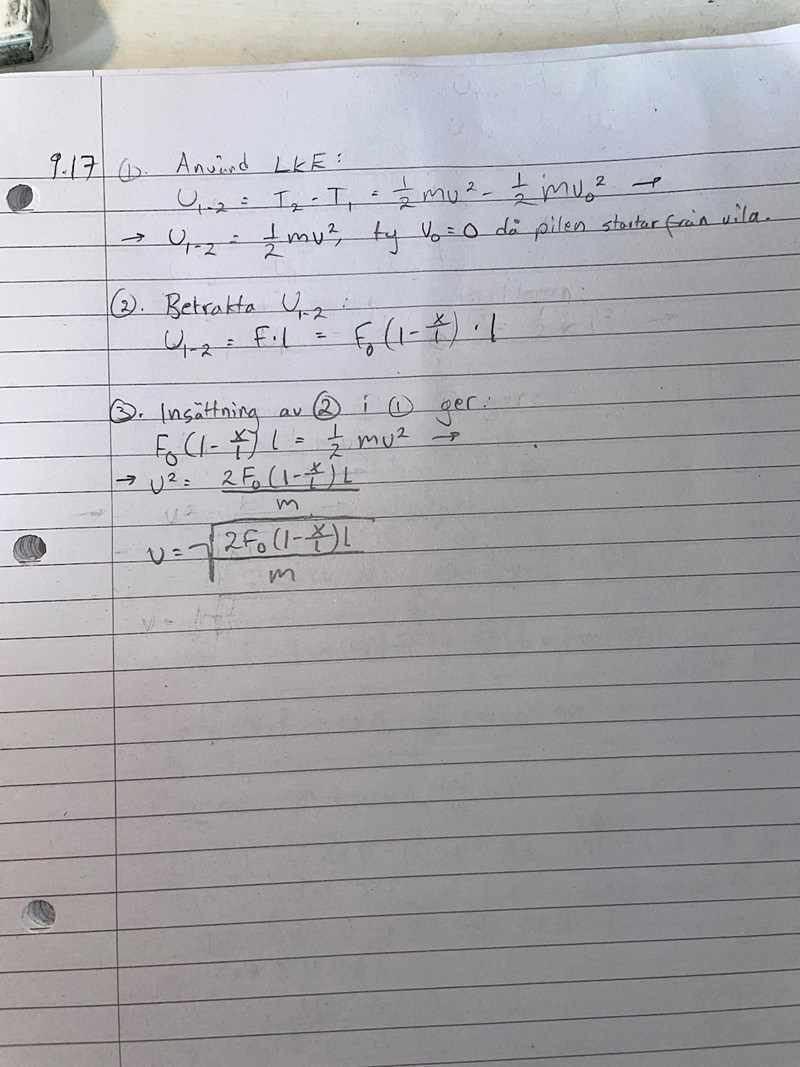 9.17 ①. Använd LKE:
U₁₋₂ = T₂ - T₁ = 1/2 mv² - 1/2 mv₀² →
→ U₁₋₂ = 1/2 mv², ty V₀ = 0 då pilen startar från vila.
②. Betrakta U₁₋₂:
U₁₋₂ = F·l = F₀(1 - x/l)·l
③. Insättning av ② i ① ger:
F₀(1 - x/l) l = 1/2 mv² →
→ v² = 2F₀(1 - x/l)l / m
v = √(2F₀(1 - x/l)l / m)